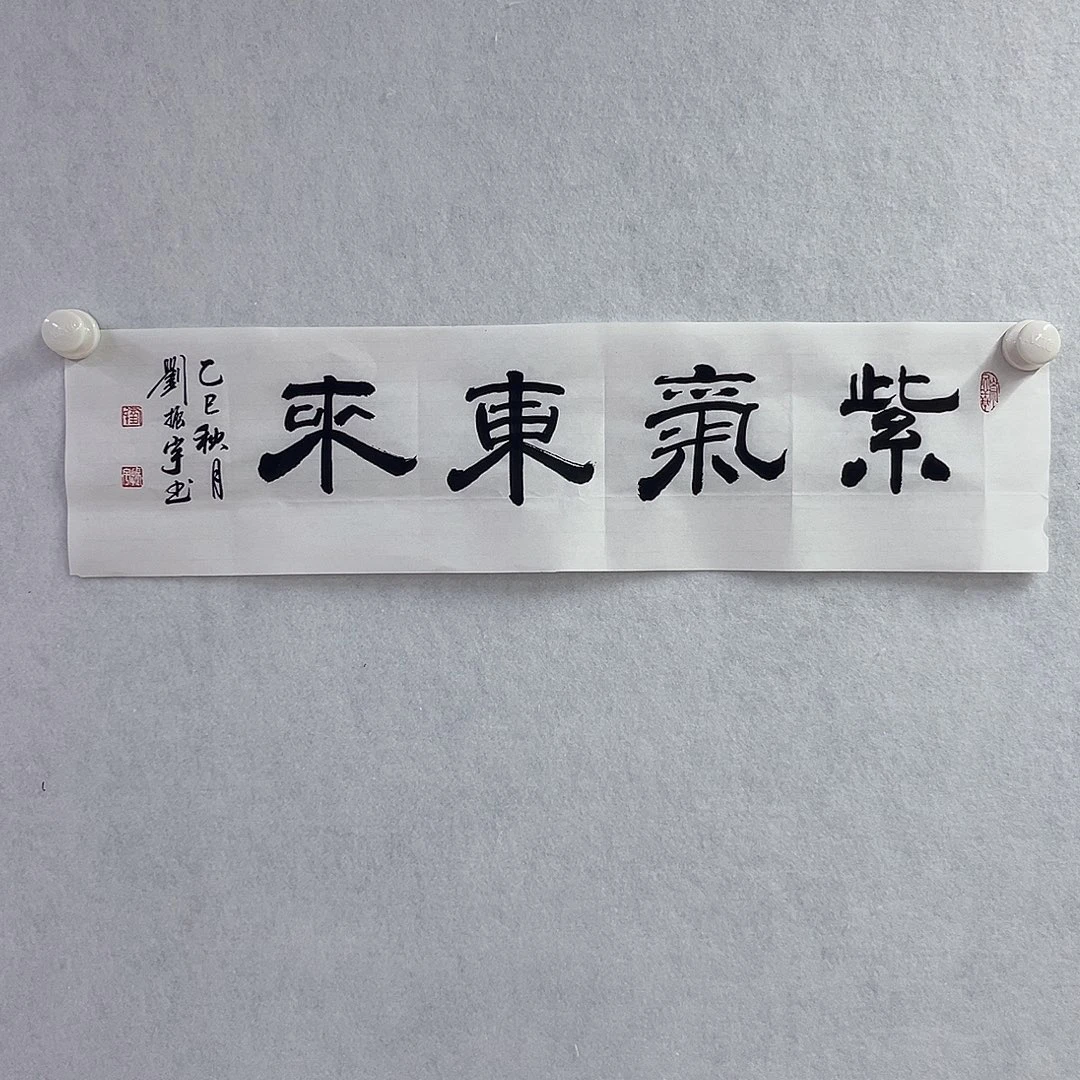 紫氣東來
乙巳秋月
劉振宇书